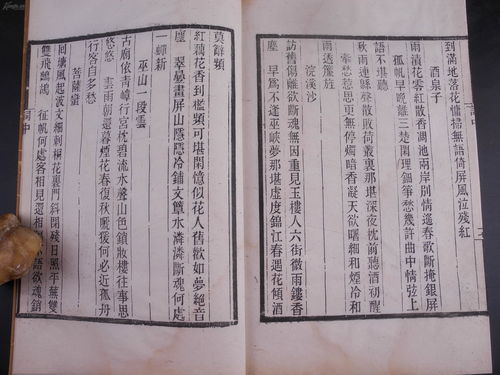 到滿地落花慵掃無語倚屏風泣殘紅
酒泉子
雨漬花零紅散香凋池兩岸別情遙春歌斷掩銀屏
孤帆早晚離三楚閒理鈿箏愁幾許曲中情弦上
語不堪聽
秋雨連緜聲散敗荷叢裏那堪深夜枕前聽酒初醒
牽愁惹思更無停燭暗香凝天欲曙細和煙冷和
雨透簾旌
浣溪沙
訪舊傷離欲斷魂無因重見玉樓人六街微雨鏤香
塵 早為不逢巫峽夢那堪虛度錦江春遇花傾酒
莫辭頻
紅藕花香到檻頻可堪閒憶似花人舊歡如夢絕音
塵 翠疊畫屏山隱隱冷鋪文簟水潾潾斷魂何處
一蟬新
巫山一段雲
古廟依青嶂行宮枕碧流水聲山色鎖妝樓往事思
悠悠 雲雨朝還暮煙花春復秋啼猿何必近孤舟
行客自多愁
菩薩蠻
回塘風起波文細刺桐花裏門斜閉殘日照平蕪雙
雙飛鷓鴣 征帆何處客相見還相隔不語欲魂銷